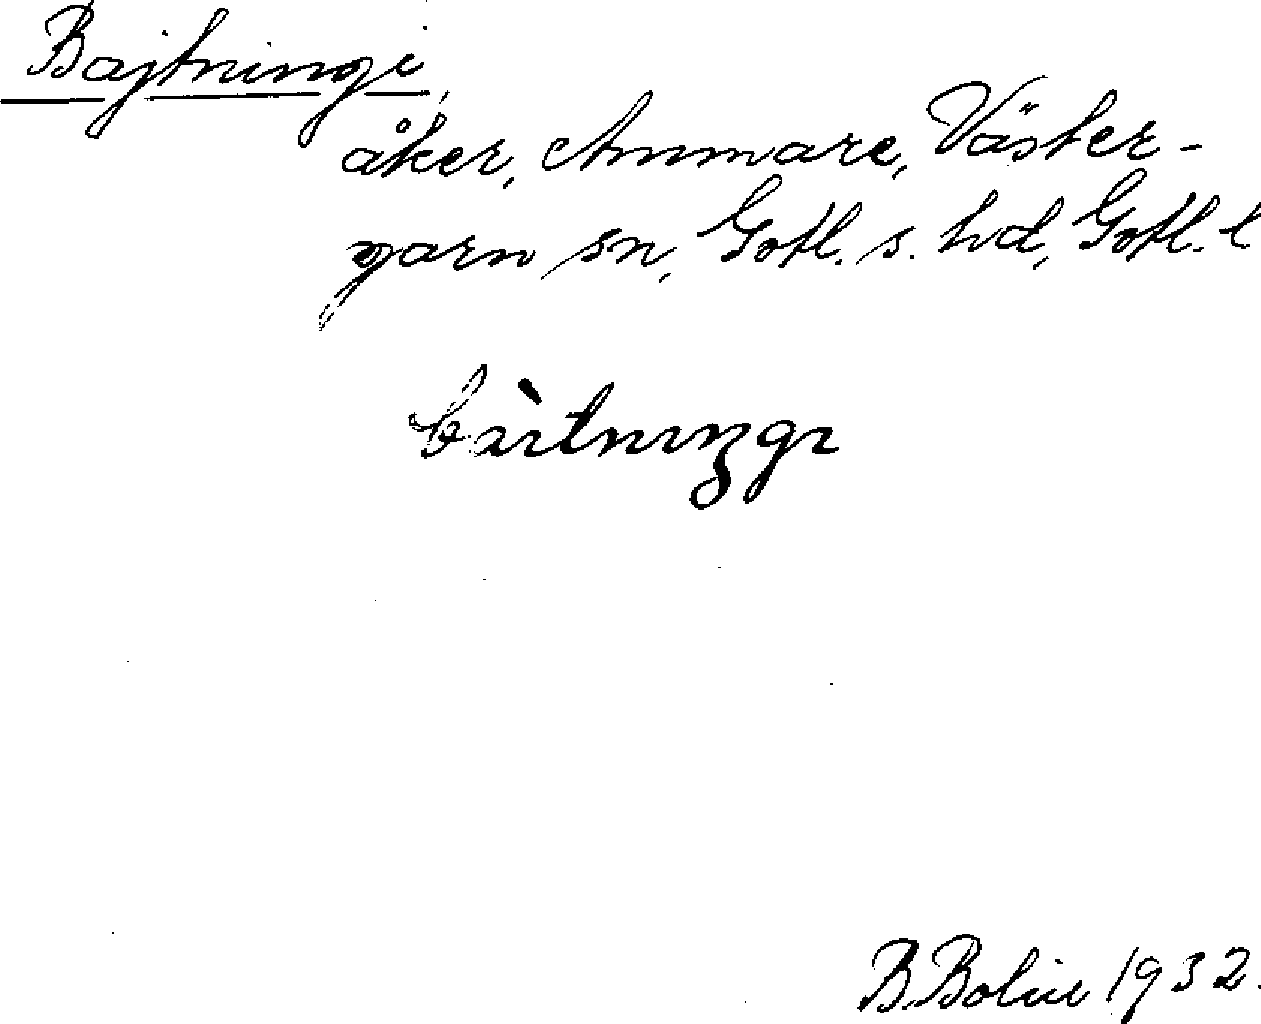 Bajtningi,
åker, Ammare, Väster-
garn sn, Gotl. s. hd, Gotl. l
B. Bolin 1932.